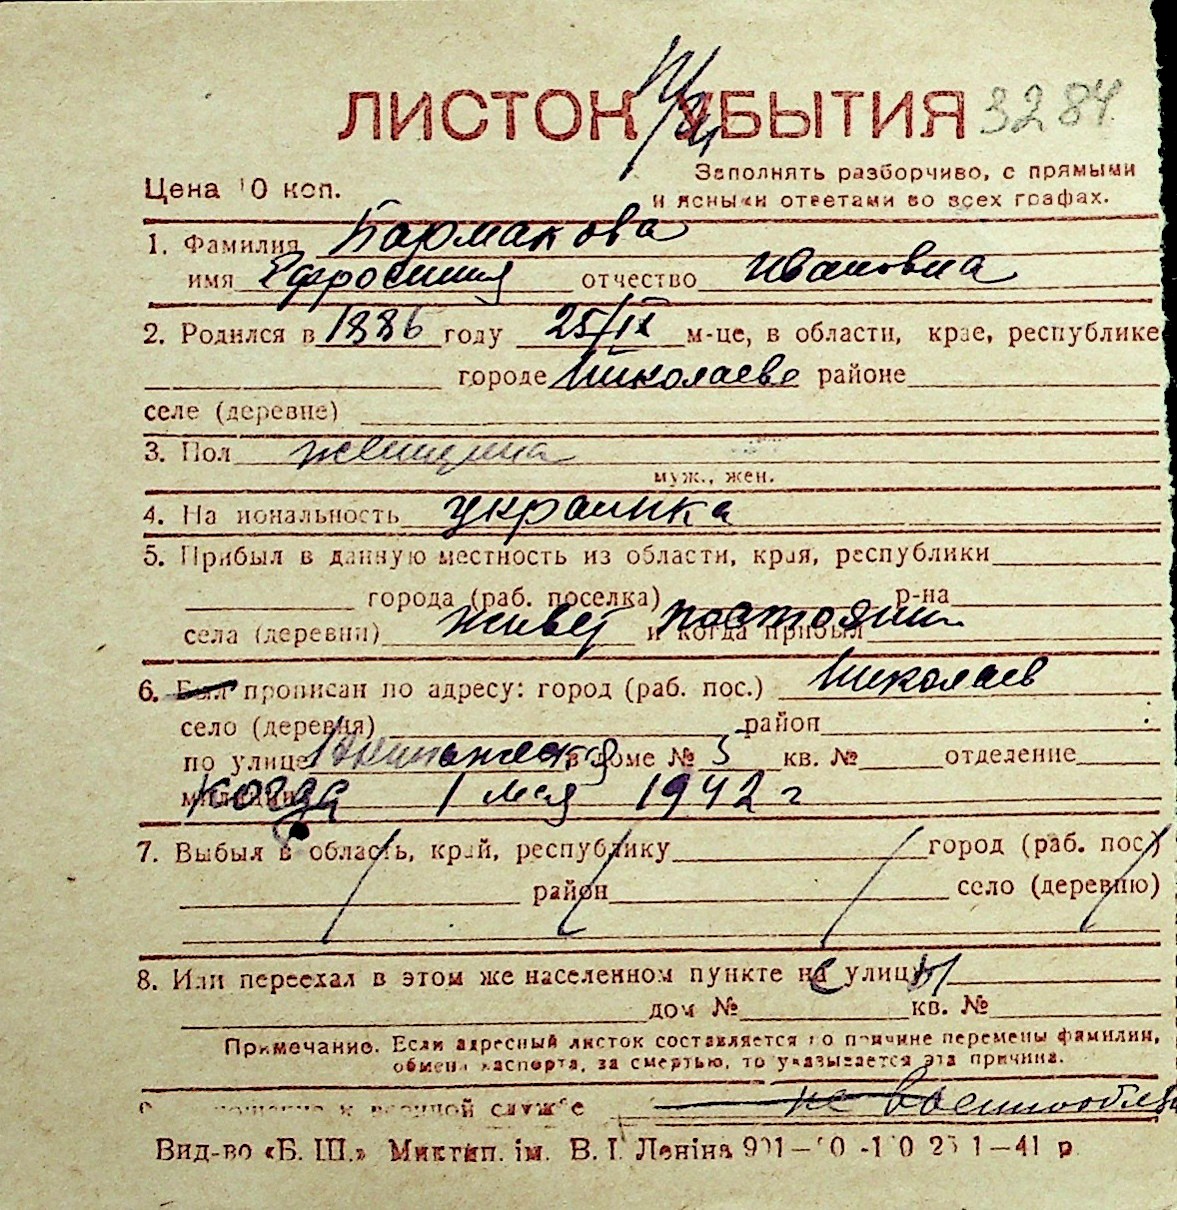 ЛИСТОК УБЫТИЯ 3284
Заполнять разборчиво, с прямыми
Цена 10 коп. и ясными ответами во всех графах.
1. Фамилия Бармакова
имя Ефросиния отчество Ивановна
2. Родился в 1886 году 25/IX м-це, в области, крае, республике
городе Николаеве районе
селе (деревне)
3. Пол женщина
муж., жен.
4. Национальность украинка
5. Прибыл в данную местность из области, края, республики
города (раб. поселка) р-на
села (деревни) живет и когда прибыл постоянн
6. Был прописан по адресу: город (раб. пос.) Николаев
село (деревня) район
по улице в доме № 5 кв. № отделение
милиции когда 1 мая 1942 г
7. Выбыл в область, край, республику город (раб. пос.)
район село (деревню)
8. Или переехал в этом же населенном пункте на улицу
дом № кв. №
Примечание. Если адресный листок составляется по причине перемены фамилии,
обмена паспорта, за смертью, то указывается эта причина.
к военной службе не военнообяза
Вид-во «Б. Ш.» Миктип. ім. В. І. Леніна 41 р